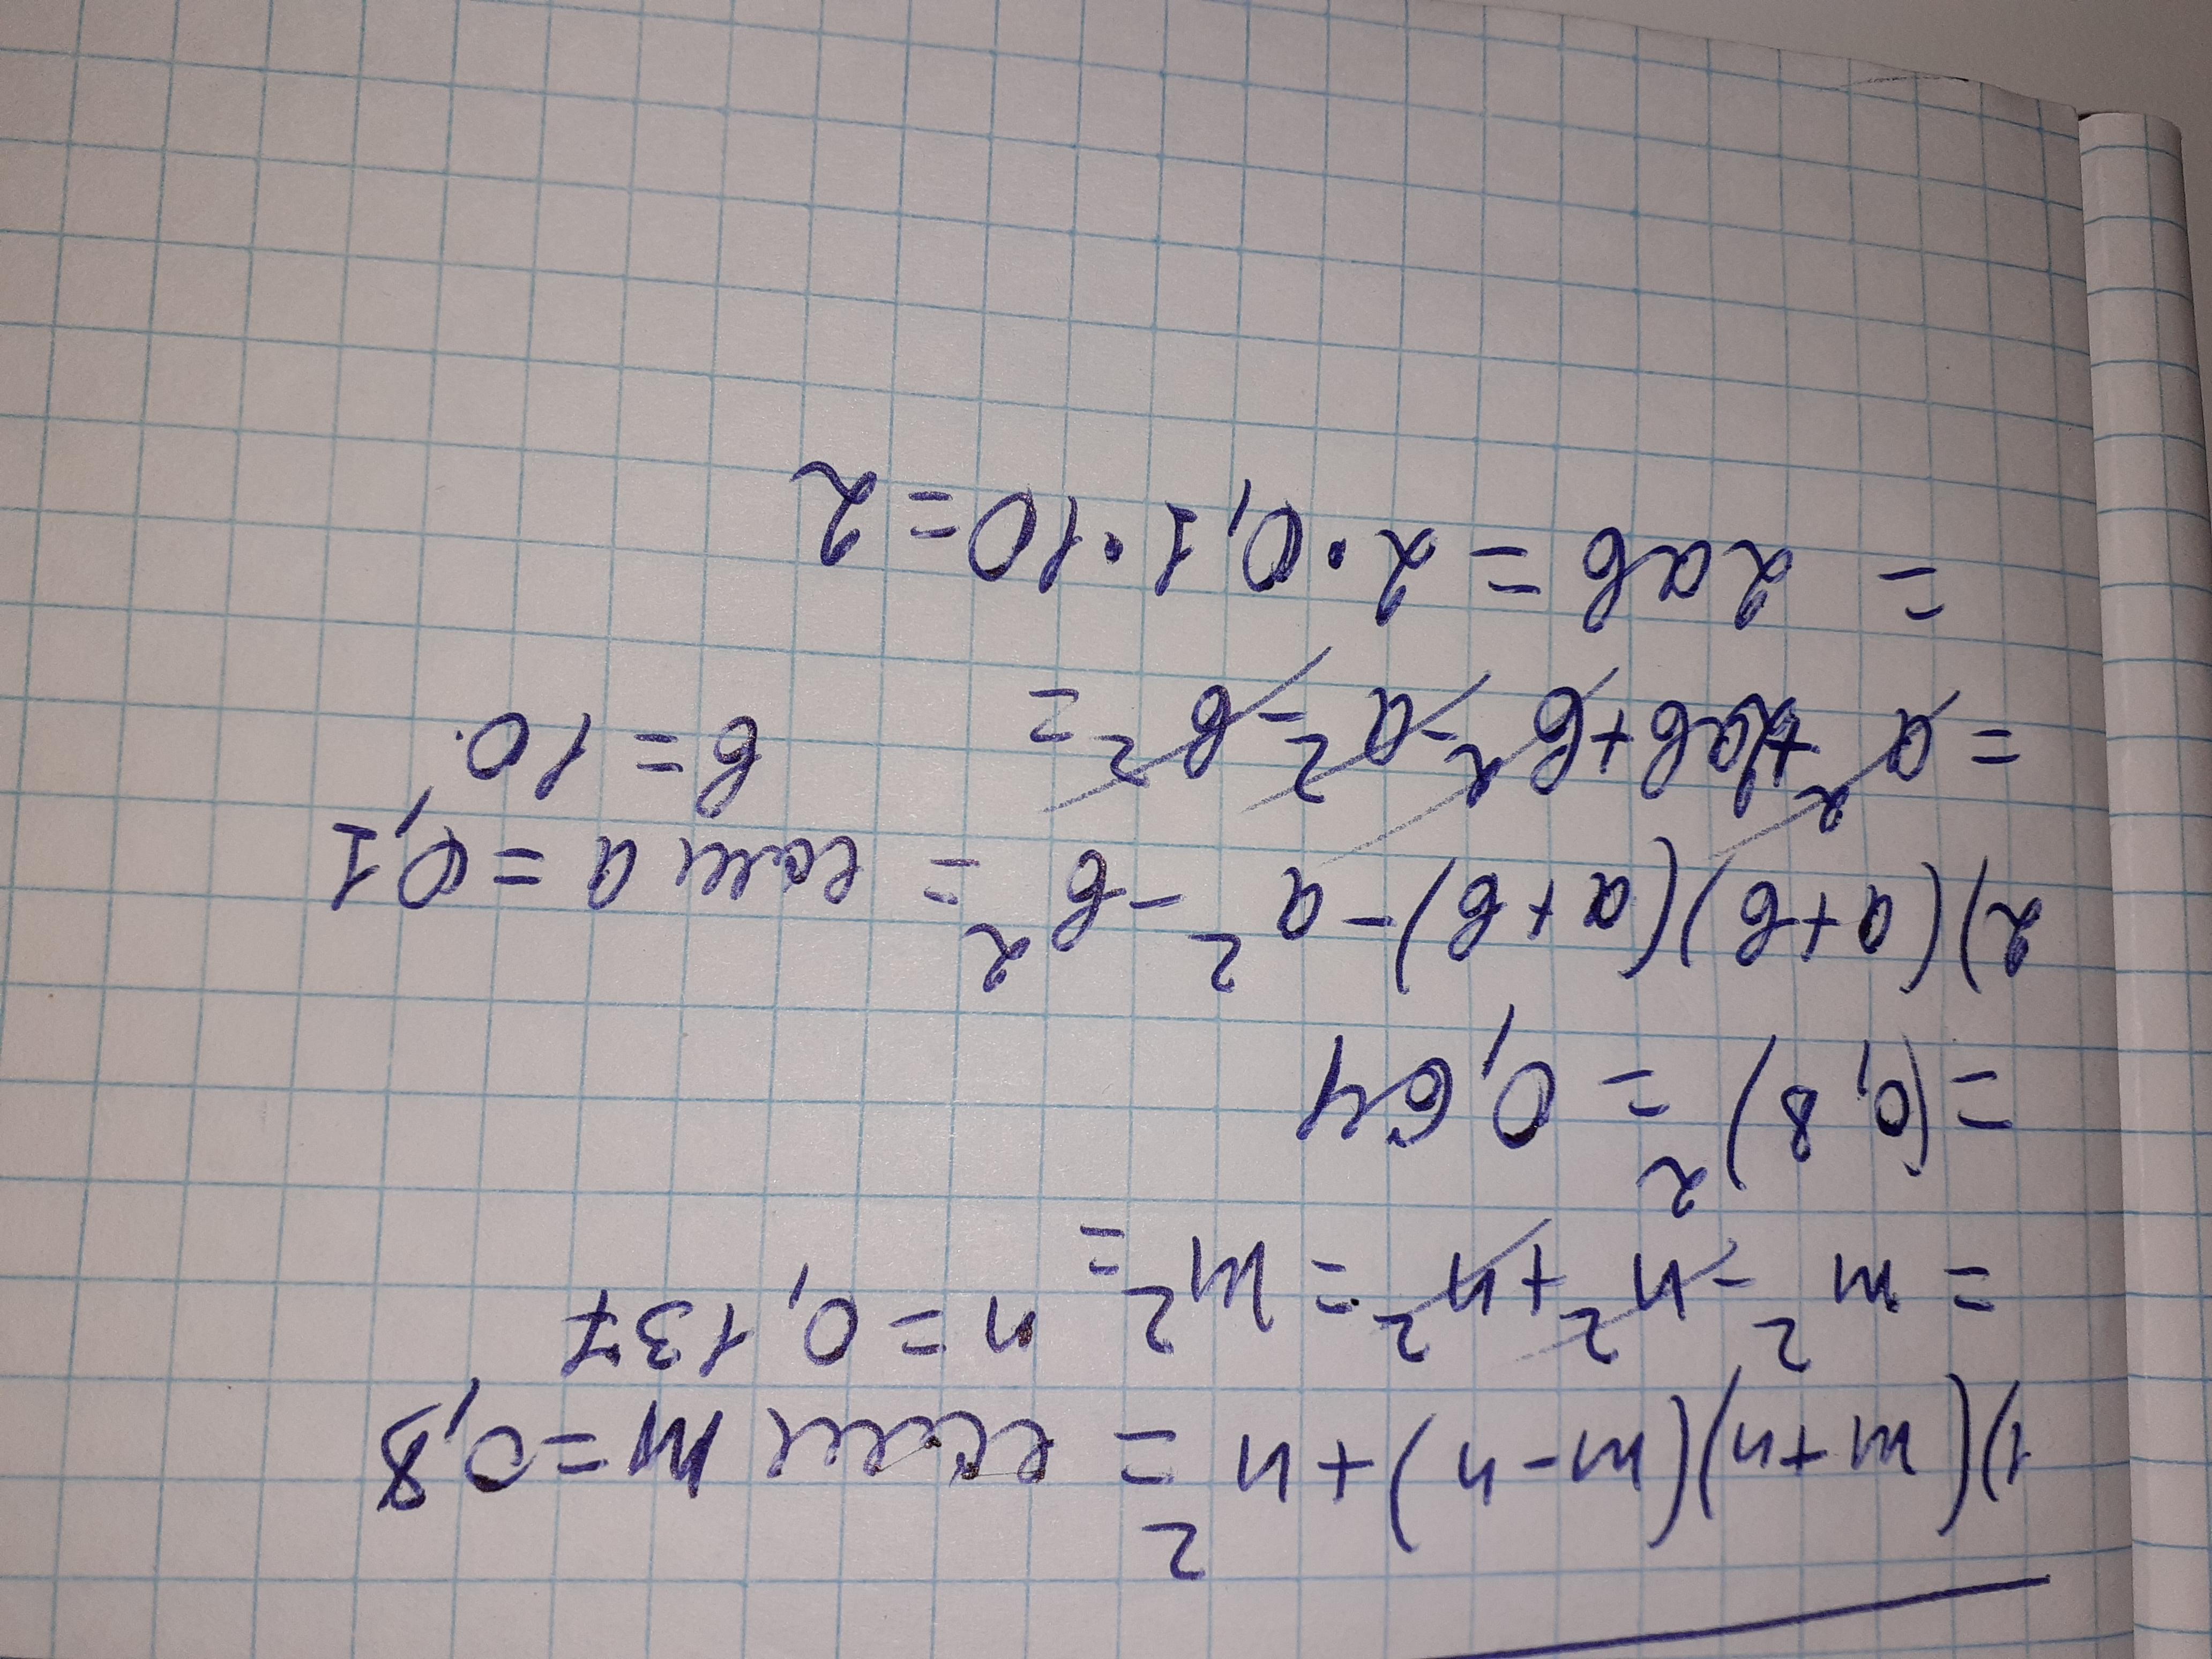 1)(m+n)(m-n)+n² = если m=0,8
= m² - n² + n² = m² = n=0,137
= (0,8)² = 0,64
2)(a+в)(a+в)-a² -в² = если a=0,1
= a² + 2aв + в² - a² - в² = в=10.
= 2aв = 2·0,1·10=2